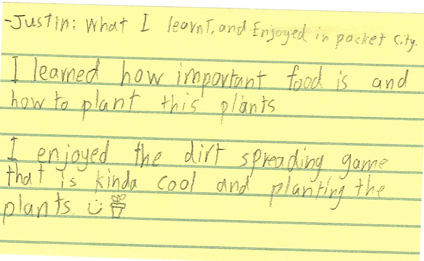 -Justin: What I learnt, and Enjoyed in pocket City.
I learned how important food is and
how to plant this plants
I enjoyed the dirt spreading game
that is kinda cool and planting the
plants